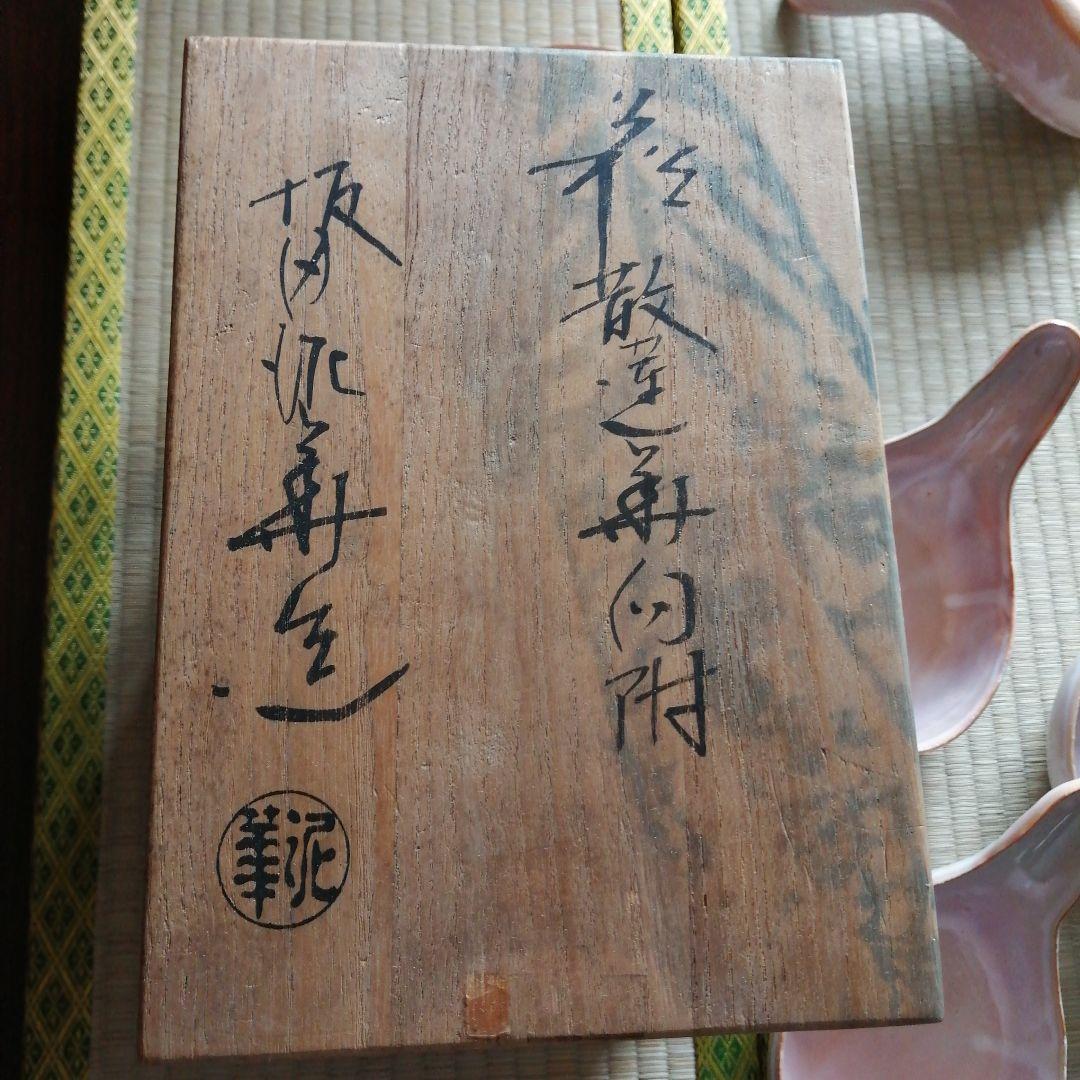 萩散蓮華向附
坂田泥華造
泥華